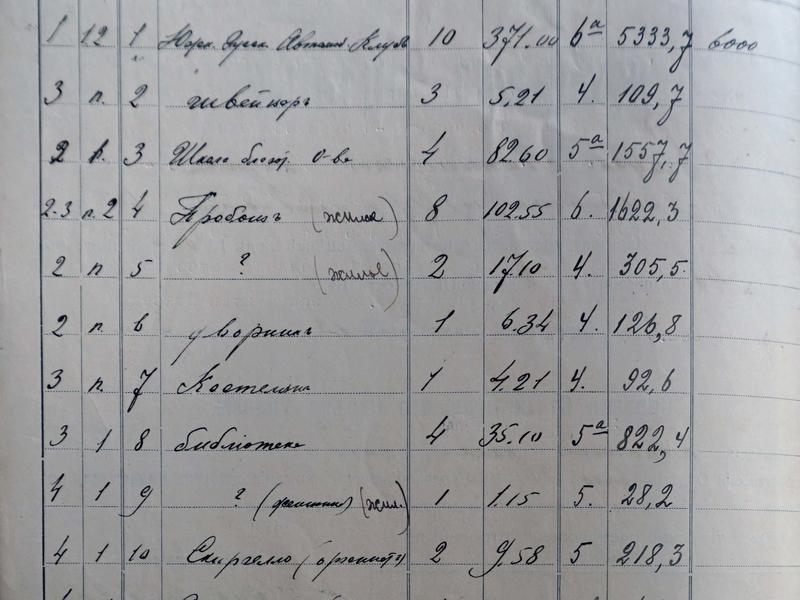 1 12 1 Авто Клубъ 10 371.00 6а 5333,7 6000
3 п. 2 швейцаръ 3 5,21 4. 109,7
2 1. 3 Школа благот. О-ва 4 82.60 5а 1557,7
2.3 п.2 4 Пробощъ (жилое) 8 102.55 6. 1622,3
2 п 5 ? (жилое) 2 17,10 4. 305,5
2 п. 6 дворникъ 1 6.34 4. 126,8
3 п. 7 Костельна 1 4.21 4. 92,6
3 1 8 библіотека 4 35.10 5а 822,4
4 1 9 ? (жил.) 1 1.15 5. 28,2
4 1 10 Скиргелло (органистъ) 2 9.58 5 218,3